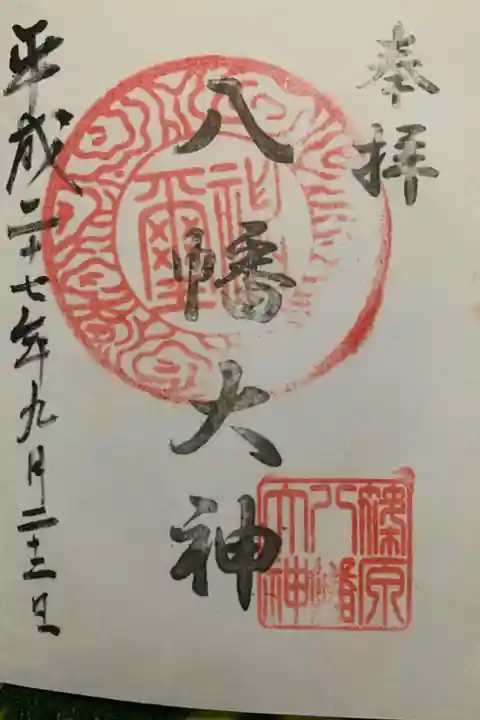 奉拝
八幡大神
篠原
八幡
大神
神璽
平成二十七年九月二十三日